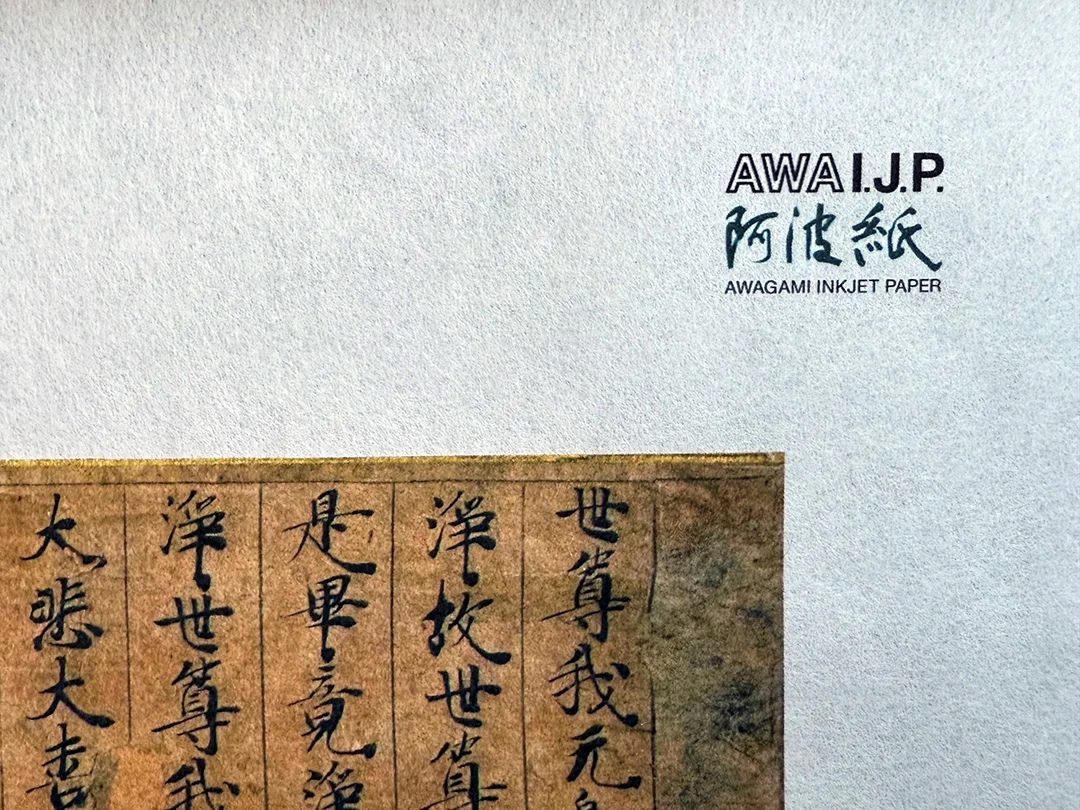 AWA I.J.P.
阿波紙
AWAGAMI INKJET PAPER
世尊我无
淨故世尊
是畢竟淨
淨世尊我
大悲大喜